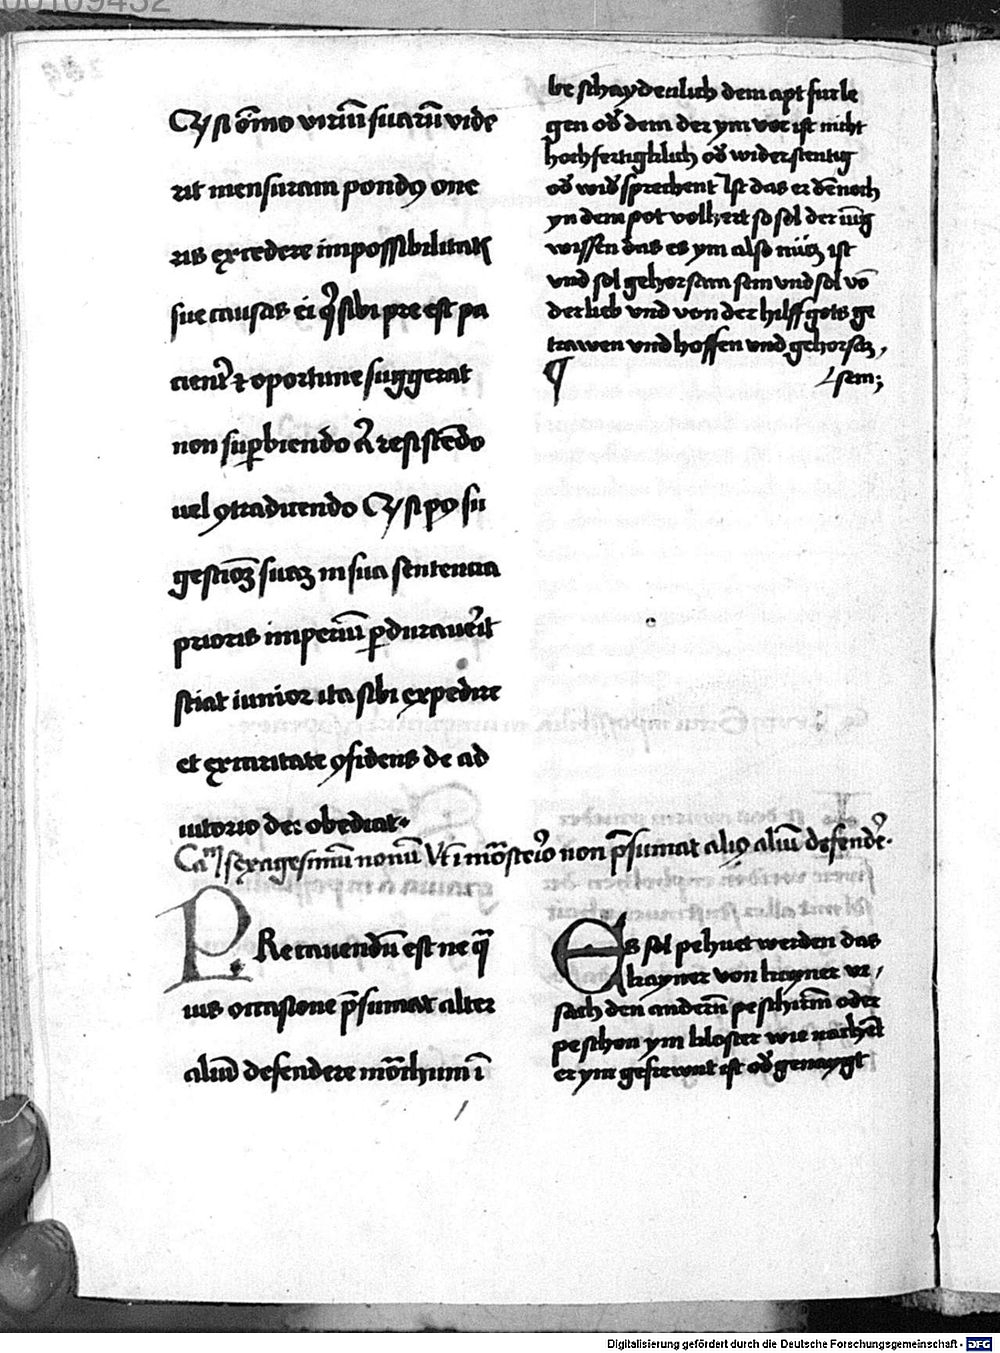 Qz si om̄o viriū suarū vide
rit mensuram pondꝯ one
ris excedere impossibilitatꝭ
sue causas ei q̇ sibi pre est pa
cient᷑ ⁊ oportune suggerat
non suꝑbiendo aut resistēdo
uel ꝯtradicendo Qz si po su
gestioēꝫ suaꝫ in sua sententia
prioris imperiū ꝑdurauerit
sciat iunior ita sibi expedire
et ex caritate ꝯfidens de ad
iutorio dei obediat
be schaydenlich dem apt furle
gen od̄ dem der ym vor ist nicht
hochfertigklich od̄ widerstentig
od̄ wid̄ sprechent Ist das er dēnoch
yn dem pot volhert so sol der iūg
wissen das es ym also nücz ist
vnd sol gehorsam sein vnd sol vō
der lieb vnd von der hilff gots ge
trawen vnd hoffen vnd gehorsa
sein;
Caᵐ sexagesimū nonū Vt ī mōsterio non p̄sumat aliꝯ aliū defendeʳ
Precauendū est ne qͣ
uis occasione p̄sumat alter
aliū defendere mōchum ī
Es sol pehuet werden das
kayner von kayner vr
sach den anderñ peschirm̄ oder
peschon ym kloster wie nachēt
er ym gefrewnt ist od̄ genaygt
Digitalisierung gefördert durch die Deutsche Forschungsgemeinschaft - DFG